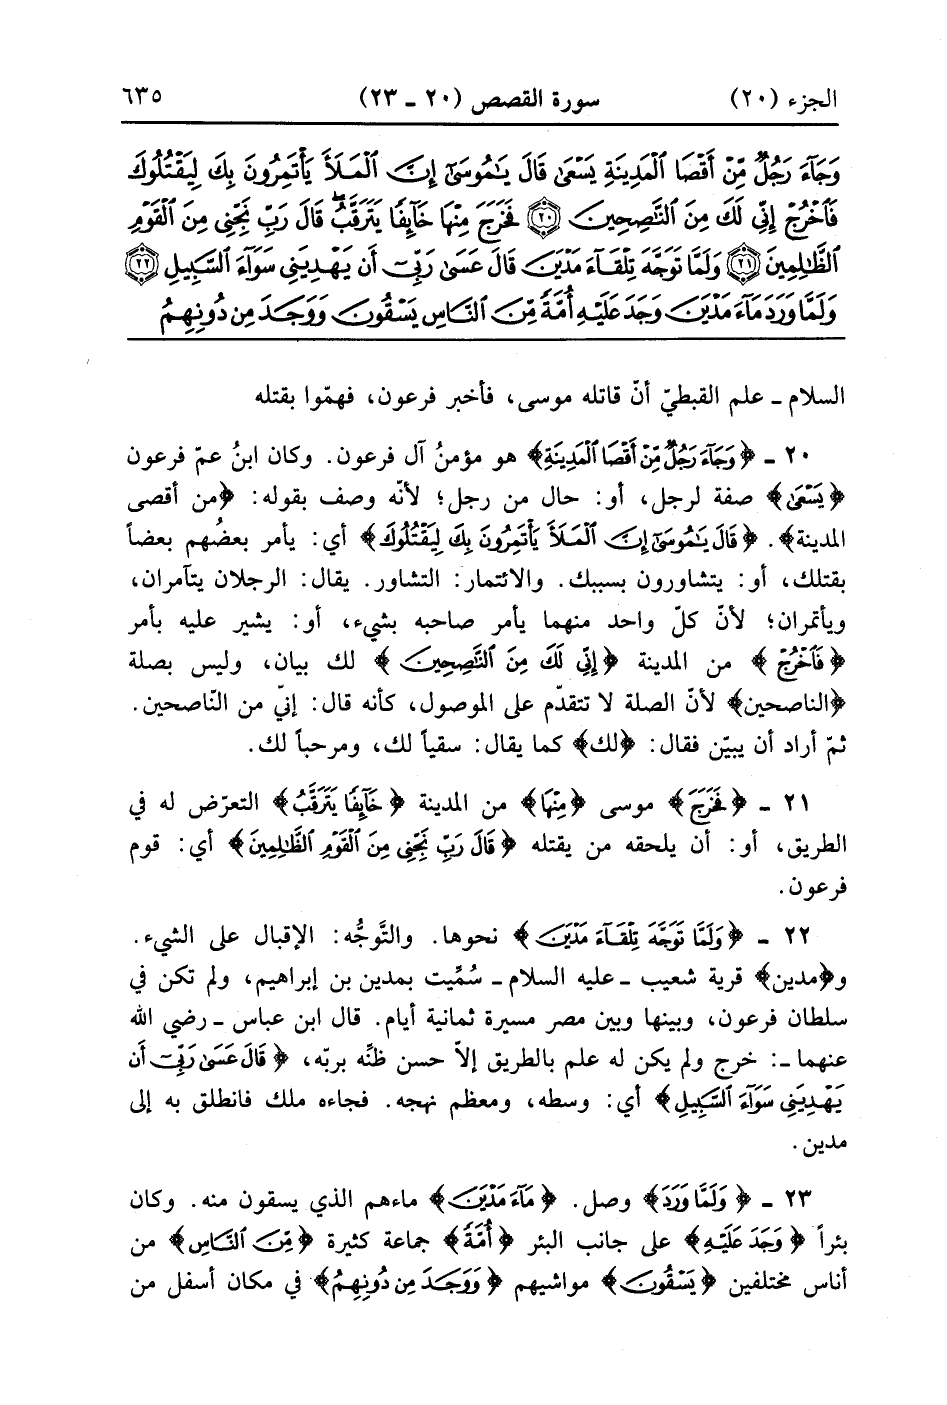 الجزء (٢٠) سورة القصص (٢٠ - ٢٣) ٦٣٥
وَجَآءَ رَجُلٌ مِّنْ أَقْصَا ٱلْمَدِينَةِ يَسْعَىٰ قَالَ يَٰمُوسَىٰٓ إِنَّ ٱلْمَلَأَ يَأْتَمِرُونَ بِكَ لِيَقْتُلُوكَ
فَٱخْرُجْ إِنِّى لَكَ مِنَ ٱلنَّٰصِحِينَ ﴿٢٠﴾ فَخَرَجَ مِنْهَا خَآئِفًا يَتَرَقَّبُ قَالَ رَبِّ نَجِّنِى مِنَ ٱلْقَوْمِ
ٱلظَّٰلِمِينَ ﴿٢١﴾ وَلَمَّا تَوَجَّهَ تِلْقَآءَ مَدْيَنَ قَالَ عَسَىٰ رَبِّىٓ أَن يَهْدِيَنِى سَوَآءَ ٱلسَّبِيلِ ﴿٢٢﴾
وَلَمَّا وَرَدَ مَآءَ مَدْيَنَ وَجَدَ عَلَيْهِ أُمَّةً مِّنَ ٱلنَّاسِ يَسْقُونَ وَوَجَدَ مِن دُونِهِمُ
السلام ـ علم القبطيّ أنّ قاتله موسى، فأخبر فرعون، فهمّوا بقتله
٢٠ - ﴿وَجَآءَ رَجُلٌ مِّنْ أَقْصَا ٱلْمَدِينَةِ﴾ هو مؤمنُ آل فرعون. وكان ابنُ عمّ فرعون
﴿يَسْعَىٰ﴾ صفة لرجل، أو: حال من رجل؛ لأنّه وصف بقوله: ﴿من أقصى
المدينة﴾. ﴿قَالَ يَٰمُوسَىٰٓ إِنَّ ٱلْمَلَأَ يَأْتَمِرُونَ بِكَ لِيَقْتُلُوكَ﴾ أي: يأمر بعضُهم بعضاً
بقتلك، أو: يتشاورون بسببك. والائتمار: التشاور. يقال: الرجلان يتآمران،
ويأتمران؛ لأنّ كلّ واحد منهما يأمر صاحبه بشيء، أو: يشير عليه بأمر
﴿فَٱخْرُجْ﴾ من المدينة ﴿إِنِّى لَكَ مِنَ ٱلنَّٰصِحِينَ﴾ لك بيان، وليس بصلة
﴿الناصحين﴾ لأنّ الصلة لا تتقدّم على الموصول، كأنه قال: إنيّ من النّاصحين.
ثمّ أراد أن يبيّن فقال: ﴿لك﴾ كما يقال: سقياً لك، ومرحباً لك.
٢١ - ﴿فَخَرَجَ﴾ موسى ﴿مِنْهَا﴾ من المدينة ﴿خَآئِفًا يَتَرَقَّبُ﴾ التعرّض له في
الطريق، أو: أن يلحقه من يقتله ﴿قَالَ رَبِّ نَجِّنِى مِنَ ٱلْقَوْمِ ٱلظَّٰلِمِينَ﴾ أي: قوم
فرعون.
٢٢ - ﴿وَلَمَّا تَوَجَّهَ تِلْقَآءَ مَدْيَنَ﴾ نحوها. والتَّوجُّه: الإقبال على الشيء.
و﴿مدين﴾ قرية شعيب ـ عليه السلام ـ سُمِّيت بمدين بن إبراهيم، ولم تكن في
سلطان فرعون، وبينها وبين مصر مسيرة ثمانية أيام. قال ابن عباس ـ رضي الله
عنهما ـ: خرج ولم يكن له علم بالطريق إلاّ حسن ظنّه بربّه، ﴿قَالَ عَسَىٰ رَبِّىٓ أَن
يَهْدِيَنِى سَوَآءَ ٱلسَّبِيلِ﴾ أي: وسطه، ومعظم نهجه. فجاءه ملك فانطلق به إلى
مدين.
٢٣ - ﴿وَلَمَّا وَرَدَ﴾ وصل. ﴿مَآءَ مَدْيَنَ﴾ ماءهم الذي يسقون منه. وكان
بئراً ﴿وَجَدَ عَلَيْهِ﴾ على جانب البئر ﴿أُمَّةً﴾ جماعة كثيرة ﴿مِّنَ ٱلنَّاسِ﴾ من
أناس مختلفين ﴿يَسْقُونَ﴾ مواشيهم ﴿وَوَجَدَ مِن دُونِهِمُ﴾ في مكان أسفل من